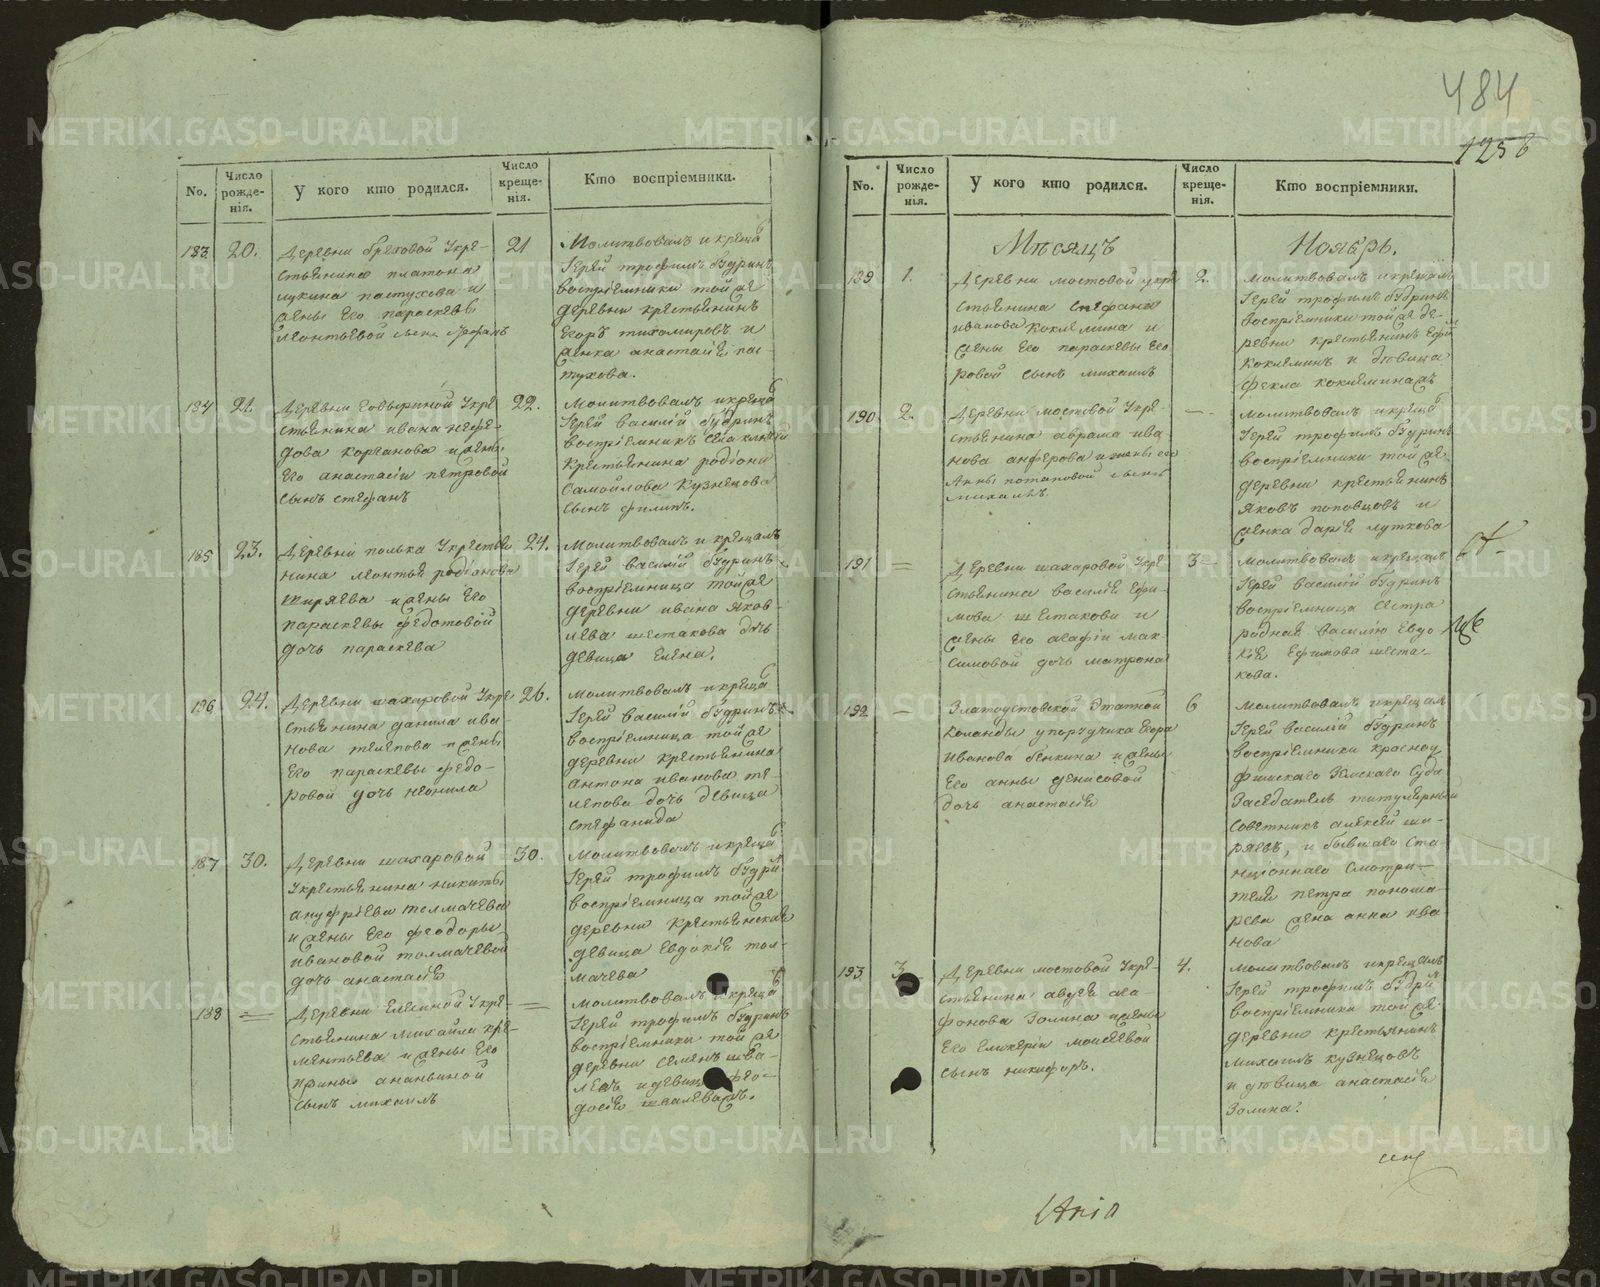 484
1256
No.
Число рожде-нія.
У кого кто родился.
Число креще-нія.
Кто воспріемники.
183 20.
Деревни Греховой Укре-
стьянина платона
лукина пастухова и
жены Его параскевы
Леонтьевой сынъ
21
Молитвовалъ и крещалъ
Іерей трофимъ Будринъ
воспріемники той же
деревни крестьянинъ
Егоръ тихомировъ и
женка анастасія пас-
тухова.
184 21.
Деревни Укре-
стьянина ивана нефе-
дова корчанова и жены
Его анастасіи петровой
сынъ стефанъ
22.
Молитвовалъ и крещалъ
Іерей василій Будринъ
воспріемникъ села ключей
крестьянина родіона
самойлова Кузнецова
сынъ филипъ.
185 23.
Деревни полька Укрестья
нина леонтья родіонова
ширяева и жены Его
параскевы федотовой
дочь параскева
24.
Молитвовалъ и крещалъ
Іерей василій Будринъ
воспріемница той же
деревни ивана яков-
лева шестакова дочь
девица Елена.
186 24.
Деревни шахаровой Укре
стьянина данила ива-
нова телепова и жены
Его параскевы федо-
ровой дочь неонила
26.
Молитвовалъ и крещалъ
Іерей василій Будринъ
воспріемница той же
деревни крестьянина
антона иванова те-
лепова дочь девица
стефанида
187 30.
Деревни шахаровой
Укрестьянина никиты
ануфріева толмачева
и жены Его феодоры
ивановой толмачевой
дочь анастасія
30.
Молитвовалъ и крещалъ
Іерей трофимъ Будринъ
воспріемница той же
деревни крестьянская
девица Евдокія тол-
мачева
188 =
Деревни Елесиной Укре-
стьянина михайла кле-
ментьева и жены Его
ирины ананьиной
сынъ михаилъ
=
Молитвовалъ и крещалъ
Іерей трофимъ Будринъ
воспріемники той же
деревни семенъ шва-
левъ и девица фео-
досія швалевыхъ.
No.
Число рожде-нія.
У кого кто родился.
Число креще-нія.
Кто воспріемники.
Мѣсяцъ Ноябрь.
189 1.
Деревни мостовой укре
стьянина стефана
иванова коклемина и
жены Его параскевы Его
ровой сынъ михаилъ
2.
молитвовалъ и крещалъ
Іерей трофимъ Будринъ
воспріемники той же де-
ревни крестьянинъ
коклеминъ и девица
фекла коклеминахъ
190 2.
Деревни мостовой Укре-
стьянина абрама ива-
нова анферова и жены его
Анны потаповой сынъ
михаилъ.
—
молитвовалъ и крещалъ
Іерей трофимъ Будринъ
воспріемники той же
деревни крестьянинъ
яковъ поповцовъ и
женка дарія луткова
191 =
Деревни шахаровой Укре
стьянина василія Ефи-
мова шестакова и
жены Его агафіи мак-
симовой дочь матрона
3
Молитвовалъ и крещалъ
Іерей василій Будринъ
воспріемница сестра
родная василію Евдо-
кія Ефимова шеста-
кова.
192 —
Златоустовской Этатной
команды упорутчика Егора
иванова Генкина и жены
Его анны денисовой
дочь анастасія
6
Молитвовалъ и крещалъ
Іерей василій Будринъ
воспріемники красноу
фимскаго Земскаго суда
Заседатель титулярный
советникъ алексей ша-
ряевъ, и бывшаго ста-
нціоннаго смотри-
теля петра понома-
рева жена анна ива
нова
193 3
Деревни мостовой Укре-
стьянина авдея ага-
фонова Золина и жены
Его гликеріи моисеевой
сынъ никифоръ.
4.
Молитвовалъ и крещалъ
Іерей трофимъ Будринъ
воспріемники той же
деревни крестьянинъ
михаилъ кузнецовъ
и девица анастасія
Золина.
METRIKI.GASO-URAL.RU